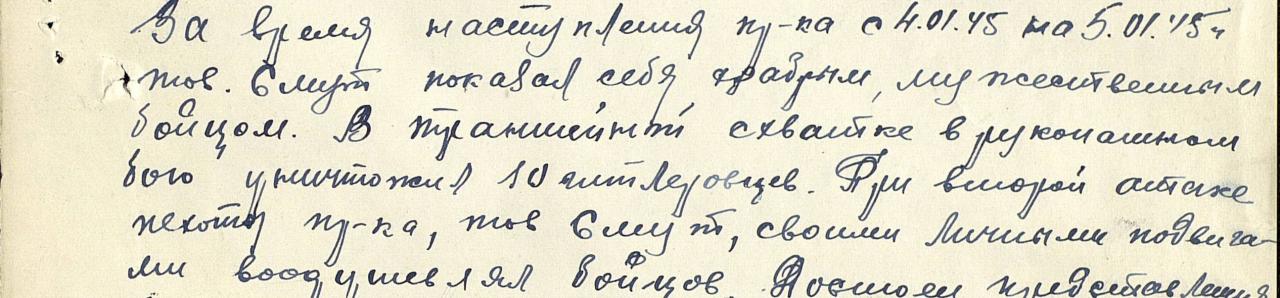 За время наступления пр-ка с 4.01.45 на 5.01.45г
тов. Смут показал себя храбрым, мужественным
бойцом. В траншейной схватке в рукопашном
бою уничтожил 10 гитлеровцев. При второй атаке
пехоты пр-ка, тов Смут, своими личными подвига-
ми воодушевлял бойцов. Достоен представления